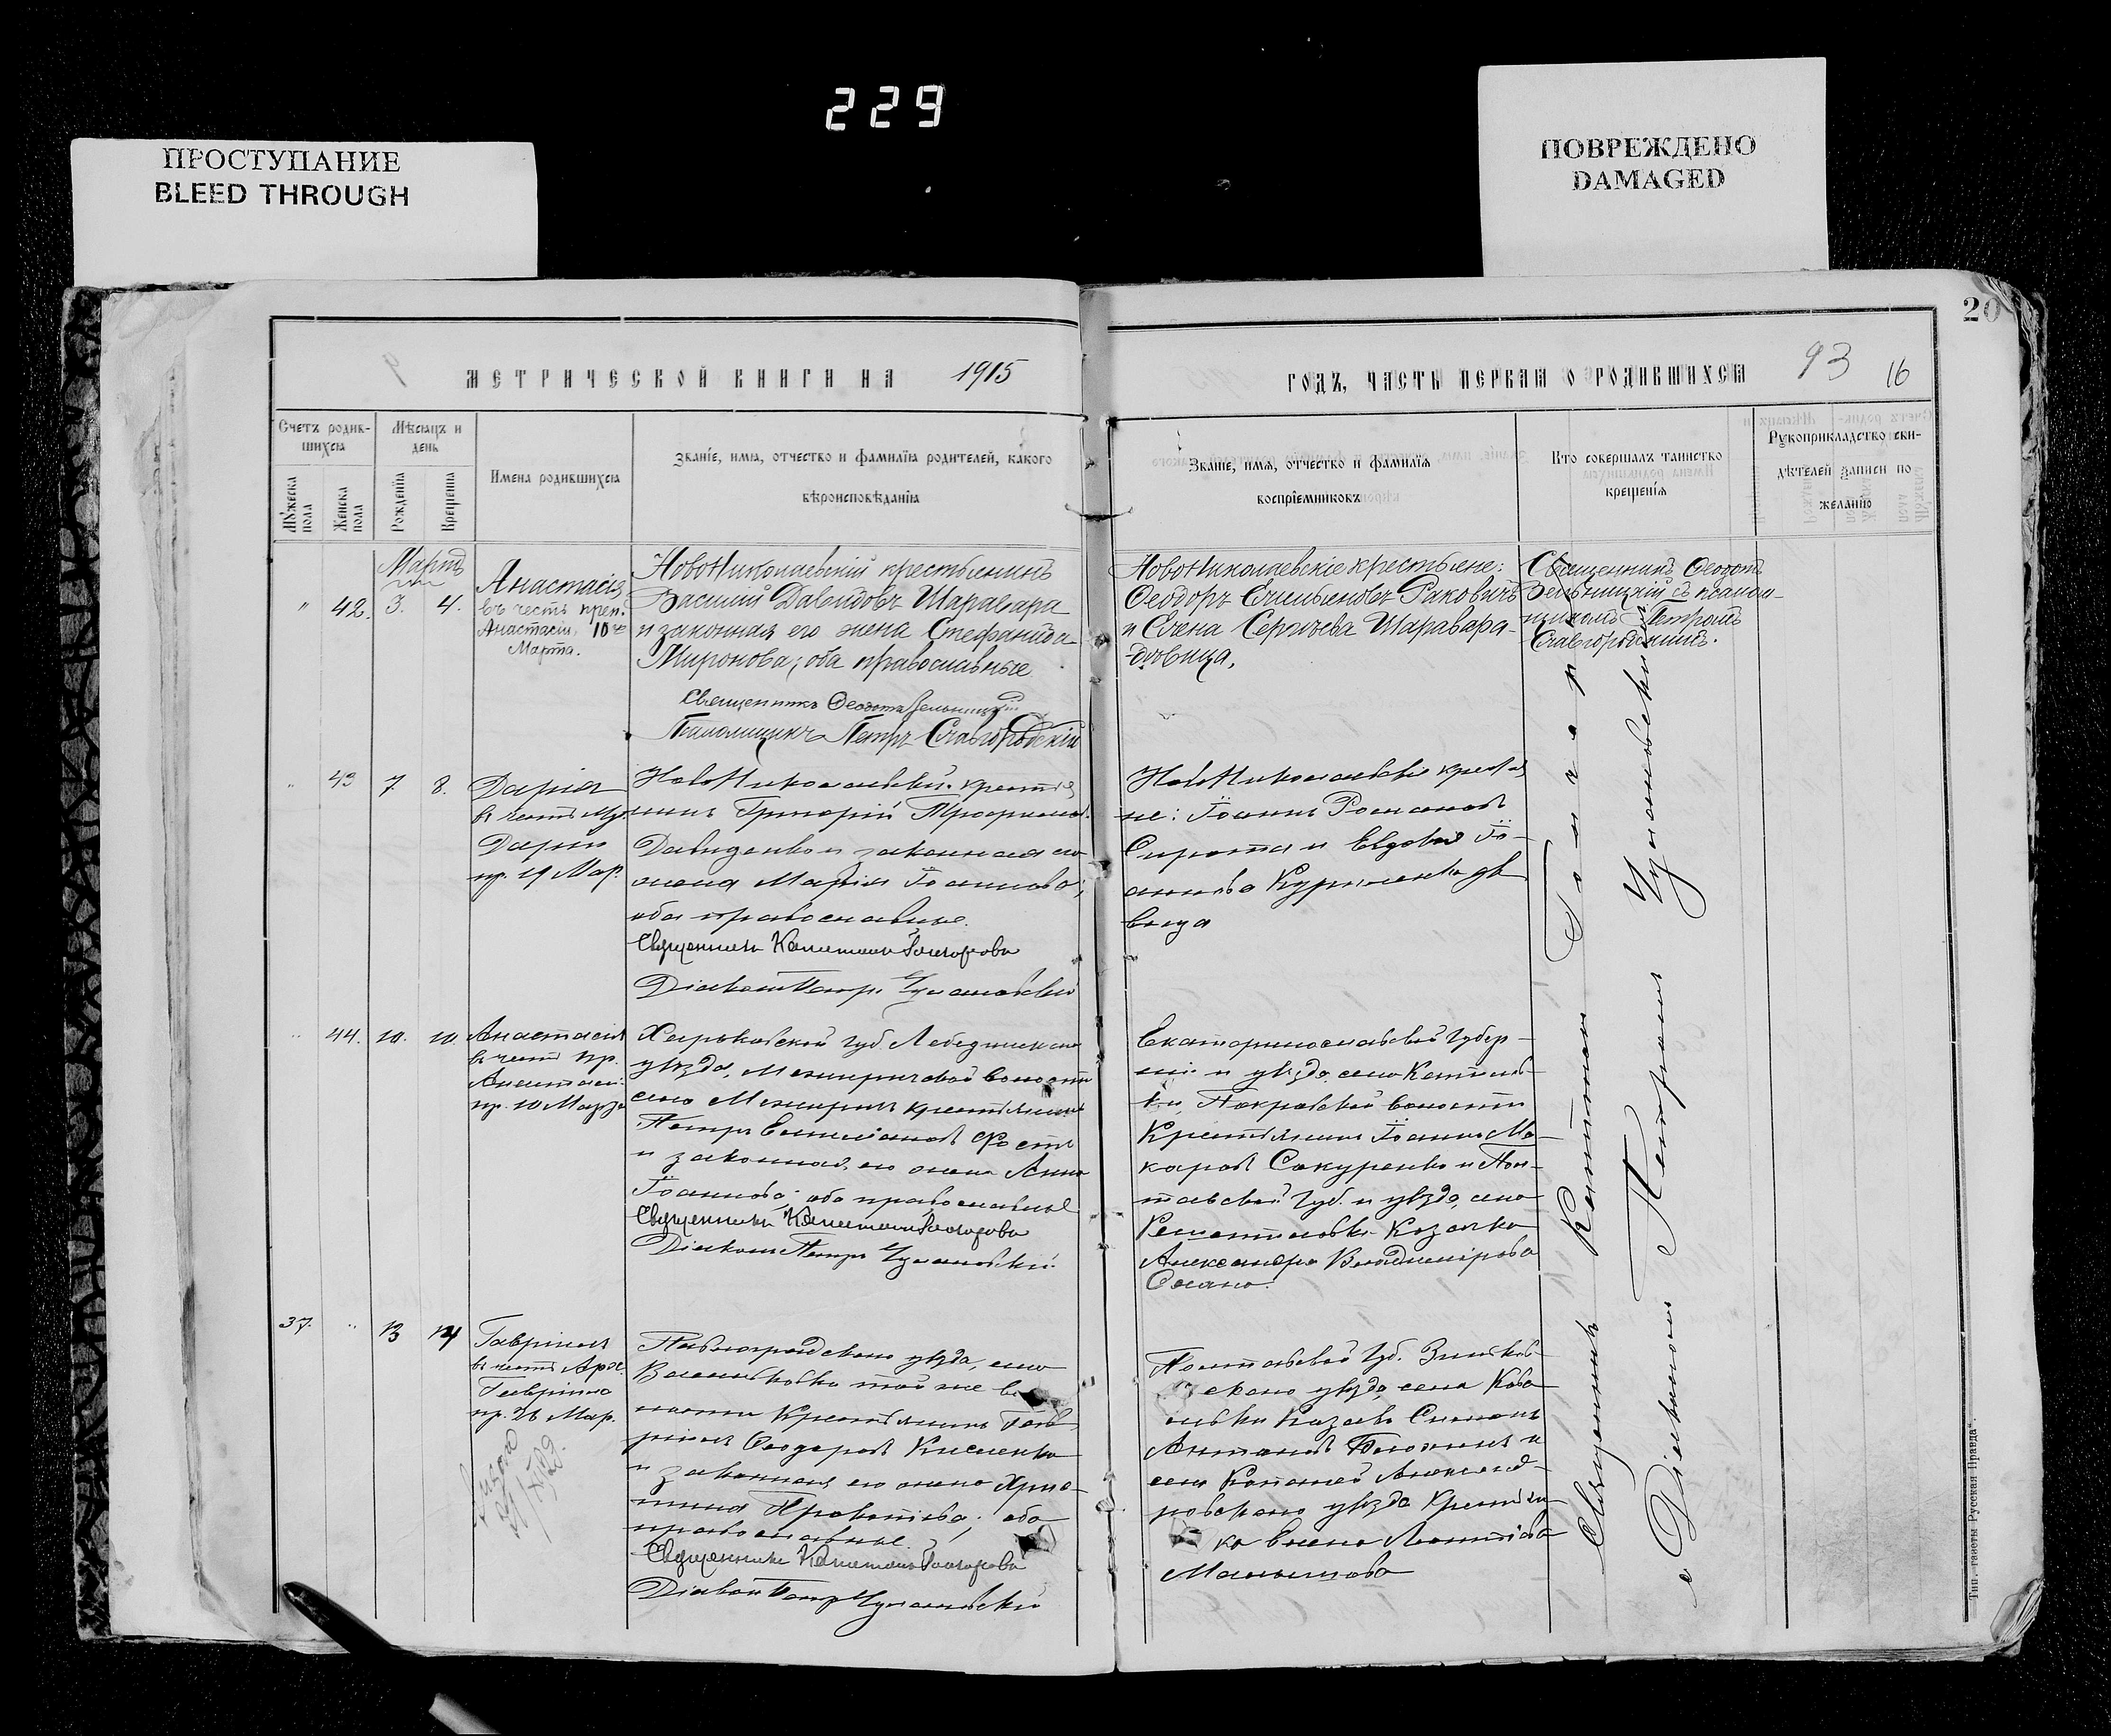 229
ПРОСТУПАНИЕ
BLEED THROUGH
ПОВРЕЖДЕНО
DAMAGED
20
МЕТРИЧЕСКОЙ КНИГИ НА 1915
ГОДЪ, ЧАСТЬ ПЕРВАЯ О РОДИВШИХСЯ
93 16
Счетъ родив-
шихся
Мѣсяцъ и
день
Мужеска пола
Женска пола
Рожденія
Крещенія
Имена родившихся
Званіе, имя, отчество и фамилія родителей, какого
вѣроисповѣданія
Званіе, имя, отчество и фамилія
воспріемниковъ
Кто совершалъ таинство
крещенія
Рукоприкладство сви-
дѣтелей записи по
желанію
Мартъ
" 42. 3. 4.
Анастасія
въ честь преп.
Анастасіи, 10го
Марта.
НовоНиколаевскій крестьянинъ
Василий Давидовъ Шаравара
и законная его жена Стефанида
Миронова; оба православные
Священникъ Феодотъ Зельницкій
Псаломщикъ Петръ Славгородскій
НовоНиколаевскіе крестьяне:
Феодоръ Емельяновъ Раковичъ
и Елена Сергіева Шаравара-
дѣвица,
Священникъ Феодотъ
Зельницкій съ псалом-
щикомъ Петромъ
Славгородскимъ.
43 7. 8.
Дарія
въ честь Муч.
Даріи
пр. 19 Мар.
НовоНиколаевскій крестья
нинъ Григорій Трофимовъ
Давиденко и законная его
жена Марія Іоаннова;
оба православные.
Священникъ Капитонъ Гончаровъ
Діаконъ Петръ Чумановскій
НовоНиколаевскіе крестья
не: Іоаннъ Романовъ
Сирота и Евдокія Іо-
аннова Куриленко дѣ
вица
44. 10. 10.
Анастасія
въ честь пр.
Анастасіи
пр. 10 Марта
Харьковской губ. Лебединскаго
уѣзда, Межиричской волости
села Межиричъ крестьянинъ
Петръ Емеліановъ
и законная его жена Анна
Іоаннова; оба православные
Священникъ Капитонъ Гончаровъ
Діаконъ Петръ Чумановскій
Екатеринославской Губер-
ніи и уѣзда, села
Покровской волости
Крестьянинъ Іоаннъ Ма-
каровъ Сакуренко и Пол-
тавской Губ. и уѣзда, села
Решетиловки Козачка
Александра Владимірова
37. " 13 14
Гавріилъ
въ честь Арх.
Гавріила
пр. 26 Мар.
Павлоградскаго уѣзда, села
Васильковки той же во
лости Крестьянинъ Гав-
ріилъ Феодоровъ Кисленко
и законная его жена Хрис-
тина; оба
православные.
Священникъ Капитонъ Гончаровъ
Діаконъ Петръ Чумановскій
Полтавской Губ. Зиньков-
скаго уѣзда, села Кова
левки Козакъ Симеонъ
Антоновъ и
села Александ-
ровскаго уѣзда Крестьян-
ка Елена Леонтіева
Священникъ Капитонъ Гончаровъ
с Діакономъ Петромъ Чумановскимъ
Тип. газеты „Русская Правда“.